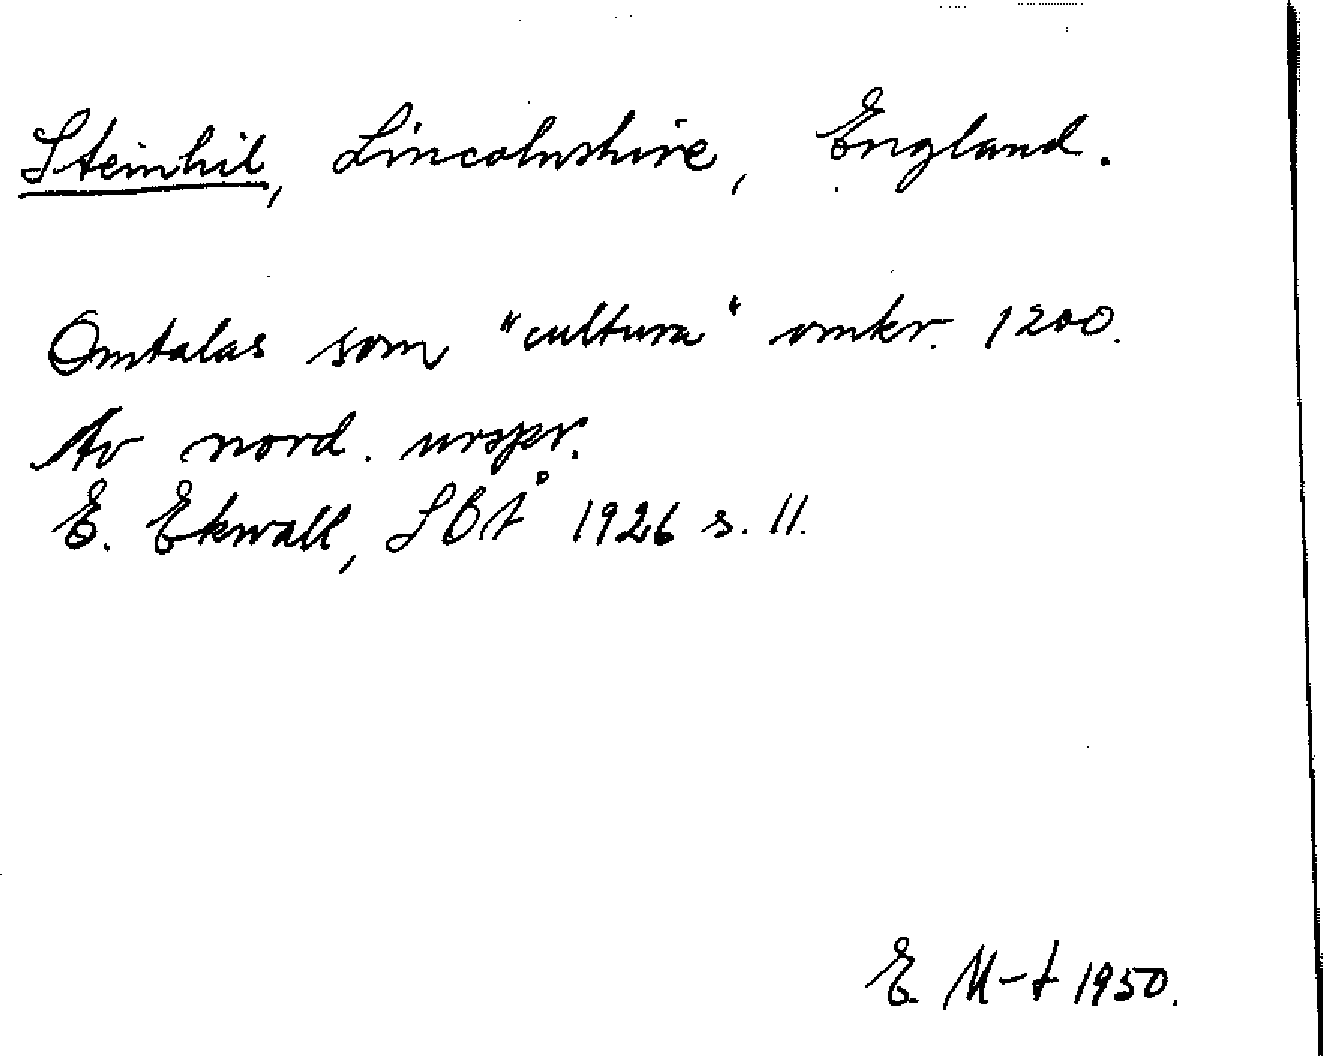 Steinhil, Lincolnshire, England.
Omtalas som "cultura" omkr. 1200.
Av nord. urspr.
E. Ekwall, SOÅ 1926 s. 11.
E M-t 1950.